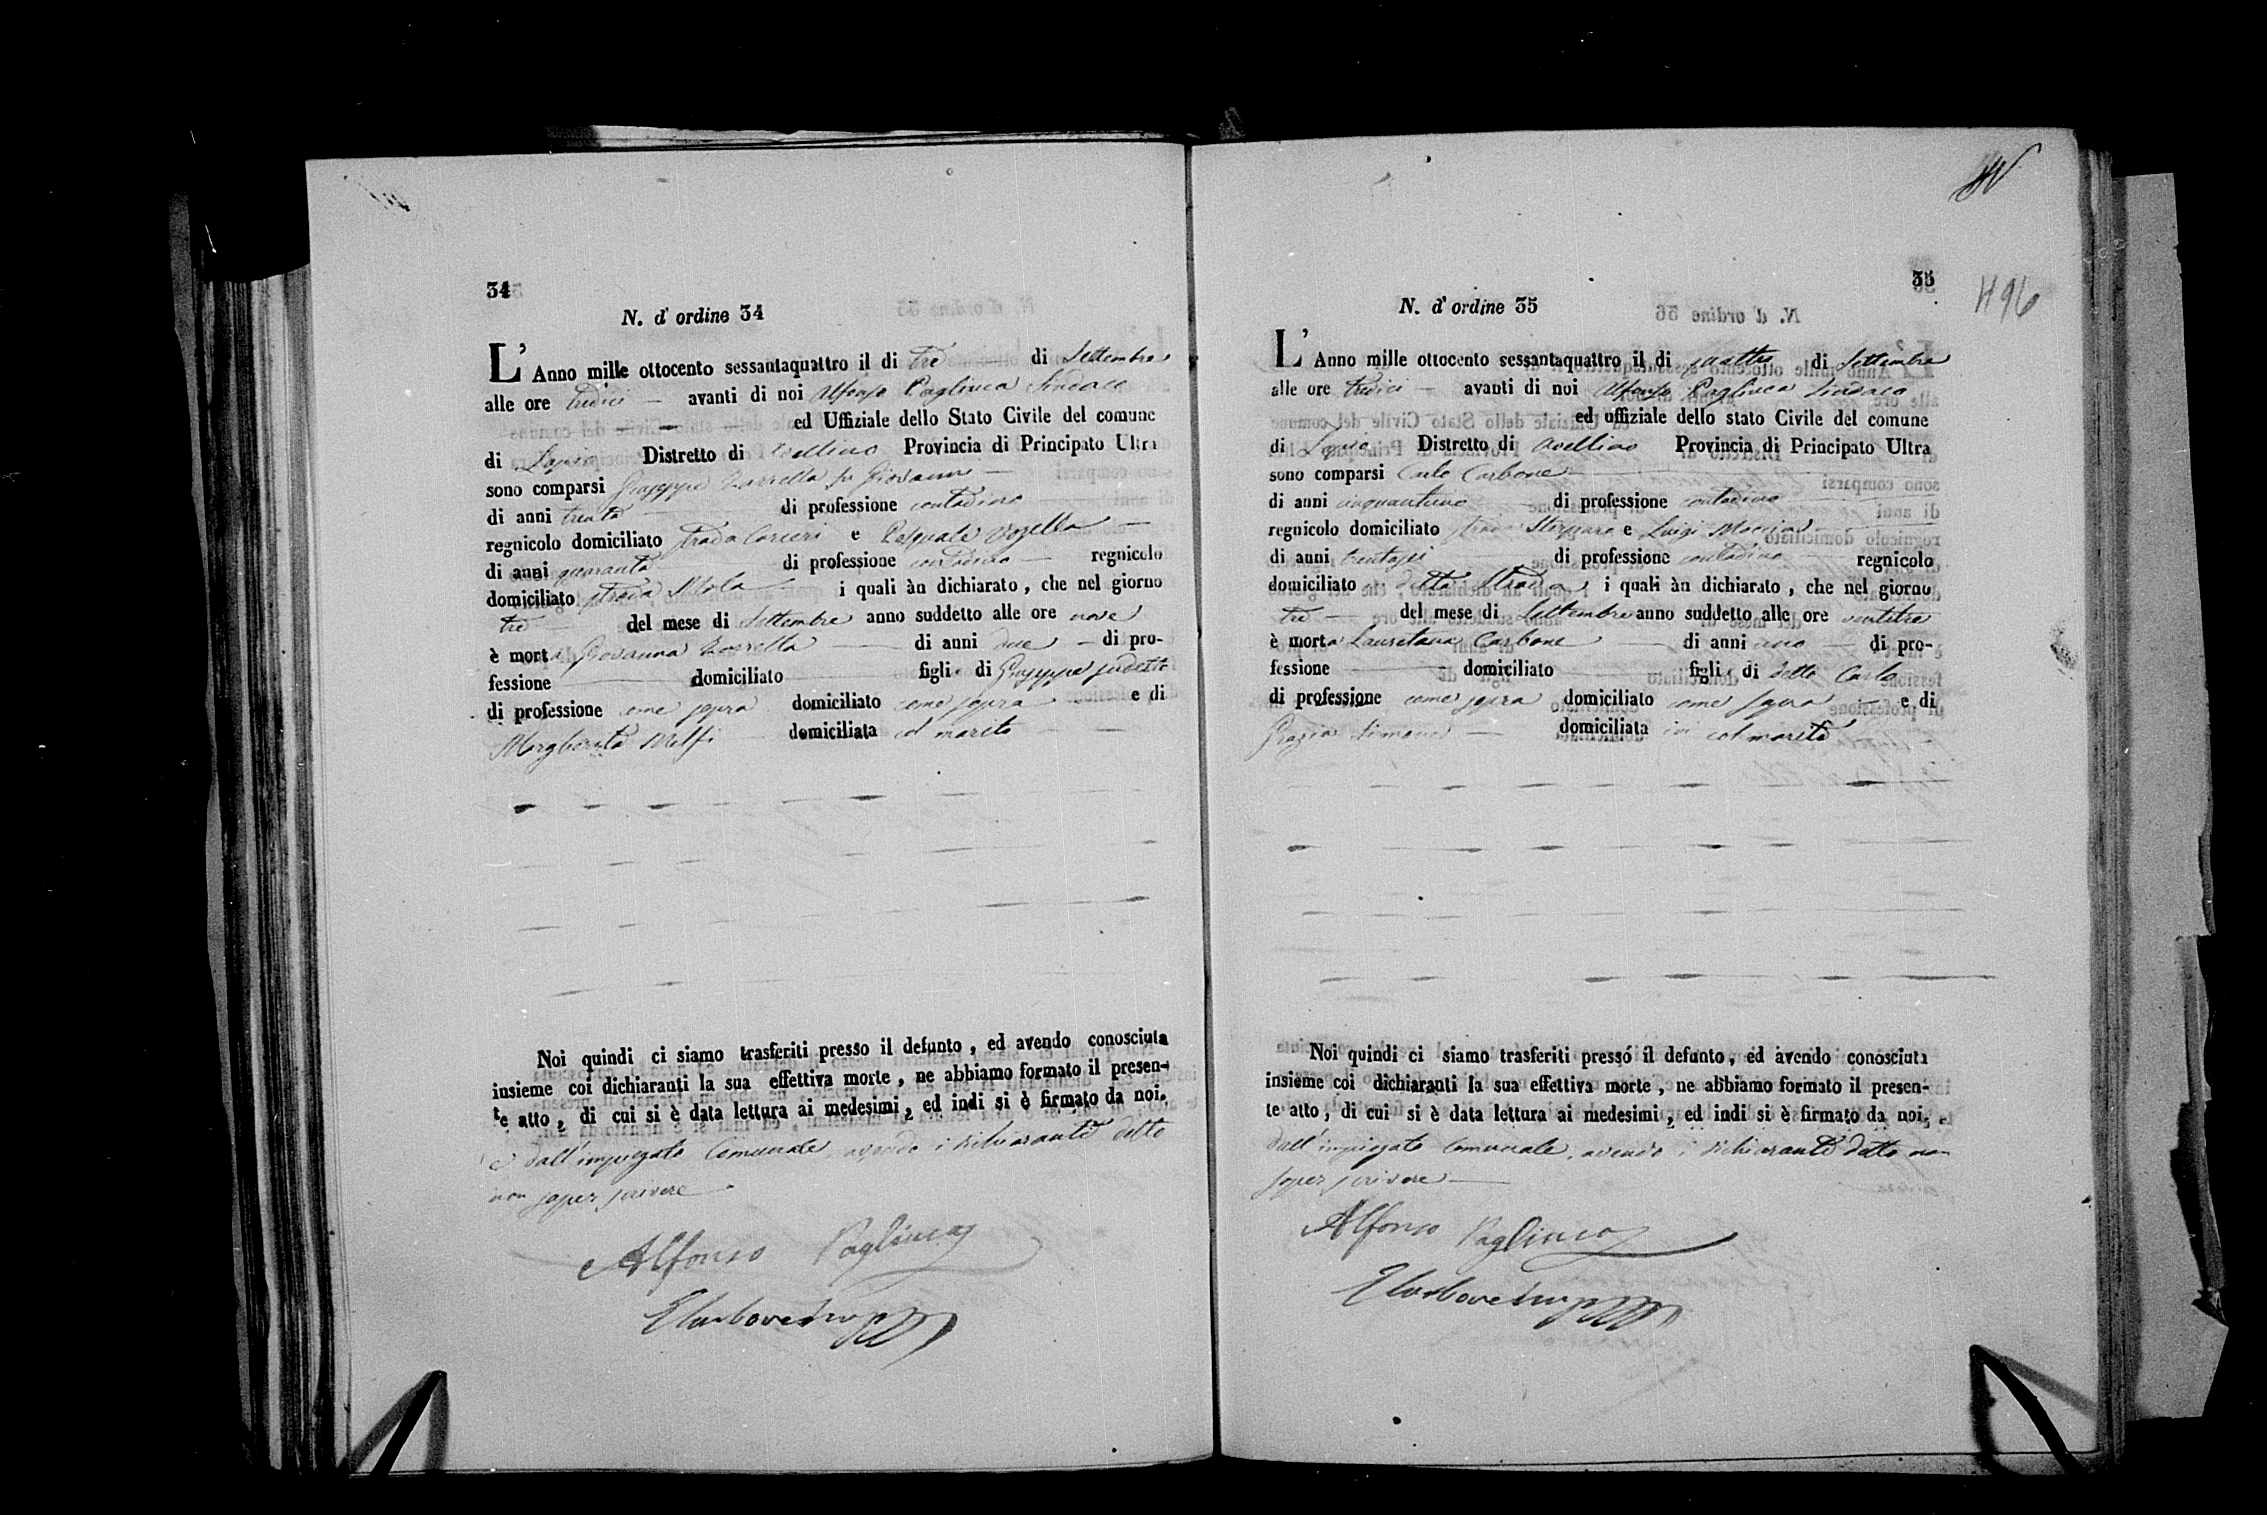 34
N. d' ordine 34
L' Anno mille ottocento sessantaquattro il di tre di Settembre
alle ore tredici avanti di noi Alfonso Pagliuca Sindaco
ed Uffiziale dello Stato Civile del comune
di Lapio Distretto di Avellino Provincia di Principato Ultra
sono comparsi Giuseppe Zarrella fu Giovanni
di anni trenta di professione contadino
regnicolo domiciliato strada Carceri e Pasquale
di anni quaranta di professione contadino regnicolo
domiciliato strada Mola i quali àn dichiarato , che nel giorno
tre del mese di Settembre anno suddetto alle ore nove
è morta Giovanna Zarrella di anni due di pro-
fessione domiciliato figlia di Giuseppe sudetto
di professione come sopra domiciliato come sopra e di
Margherita Melfi domiciliata col marito
Noi quindi ci siamo trasferiti presso il defunto , ed avendo conosciuta
insieme coi dichiaranti la sua effettiva morte , ne abbiamo formato il presen-
te atto , di cui si è data lettura ai medesimi , ed indi si è firmato da noi.
e dall'impiegato Comunale, avendo i dichiaranti detto
non saper scrivere
Alfonso Pagliuca
35
H96
N. d' ordine 35
L' Anno mille ottocento sessantaquattro il di quattro di Settembre
alle ore tredici avanti di noi Alfonso Pagliuca Sindaco
ed uffiziale dello stato Civile del comune
di Lapio Distretto di Avellino Provincia di Principato Ultra
sono comparsi Carlo Carbone
di anni cinquantuno di professione contadino
regnicolo domiciliato strada e Luigi Moccia
di anni trentasei di professione contadino regnicolo
domiciliato detta Strada i quali àn dichiarato , che nel giorno
tre del mese di Settembre anno suddetto alle ore ventitre
è morta Lauretana Carbone di anni uno di pro-
fessione domiciliato figlia di detto Carlo
di professione come sopra domiciliato come sopra e di
Grazia Simone domiciliata in col marito
Noi quindi ci siamo trasferiti presso il defunto, ed avendo conosciuta
insieme coi dichiaranti la sua effettiva morte , ne abbiamo formato il presen-
te atto , di cui si è data lettura ai medesimi , ed indi si è firmato da noi, e
dall'impiegato Comunale, avendo i dichiaranti detto non
saper scrivere
Alfonso Pagliuca